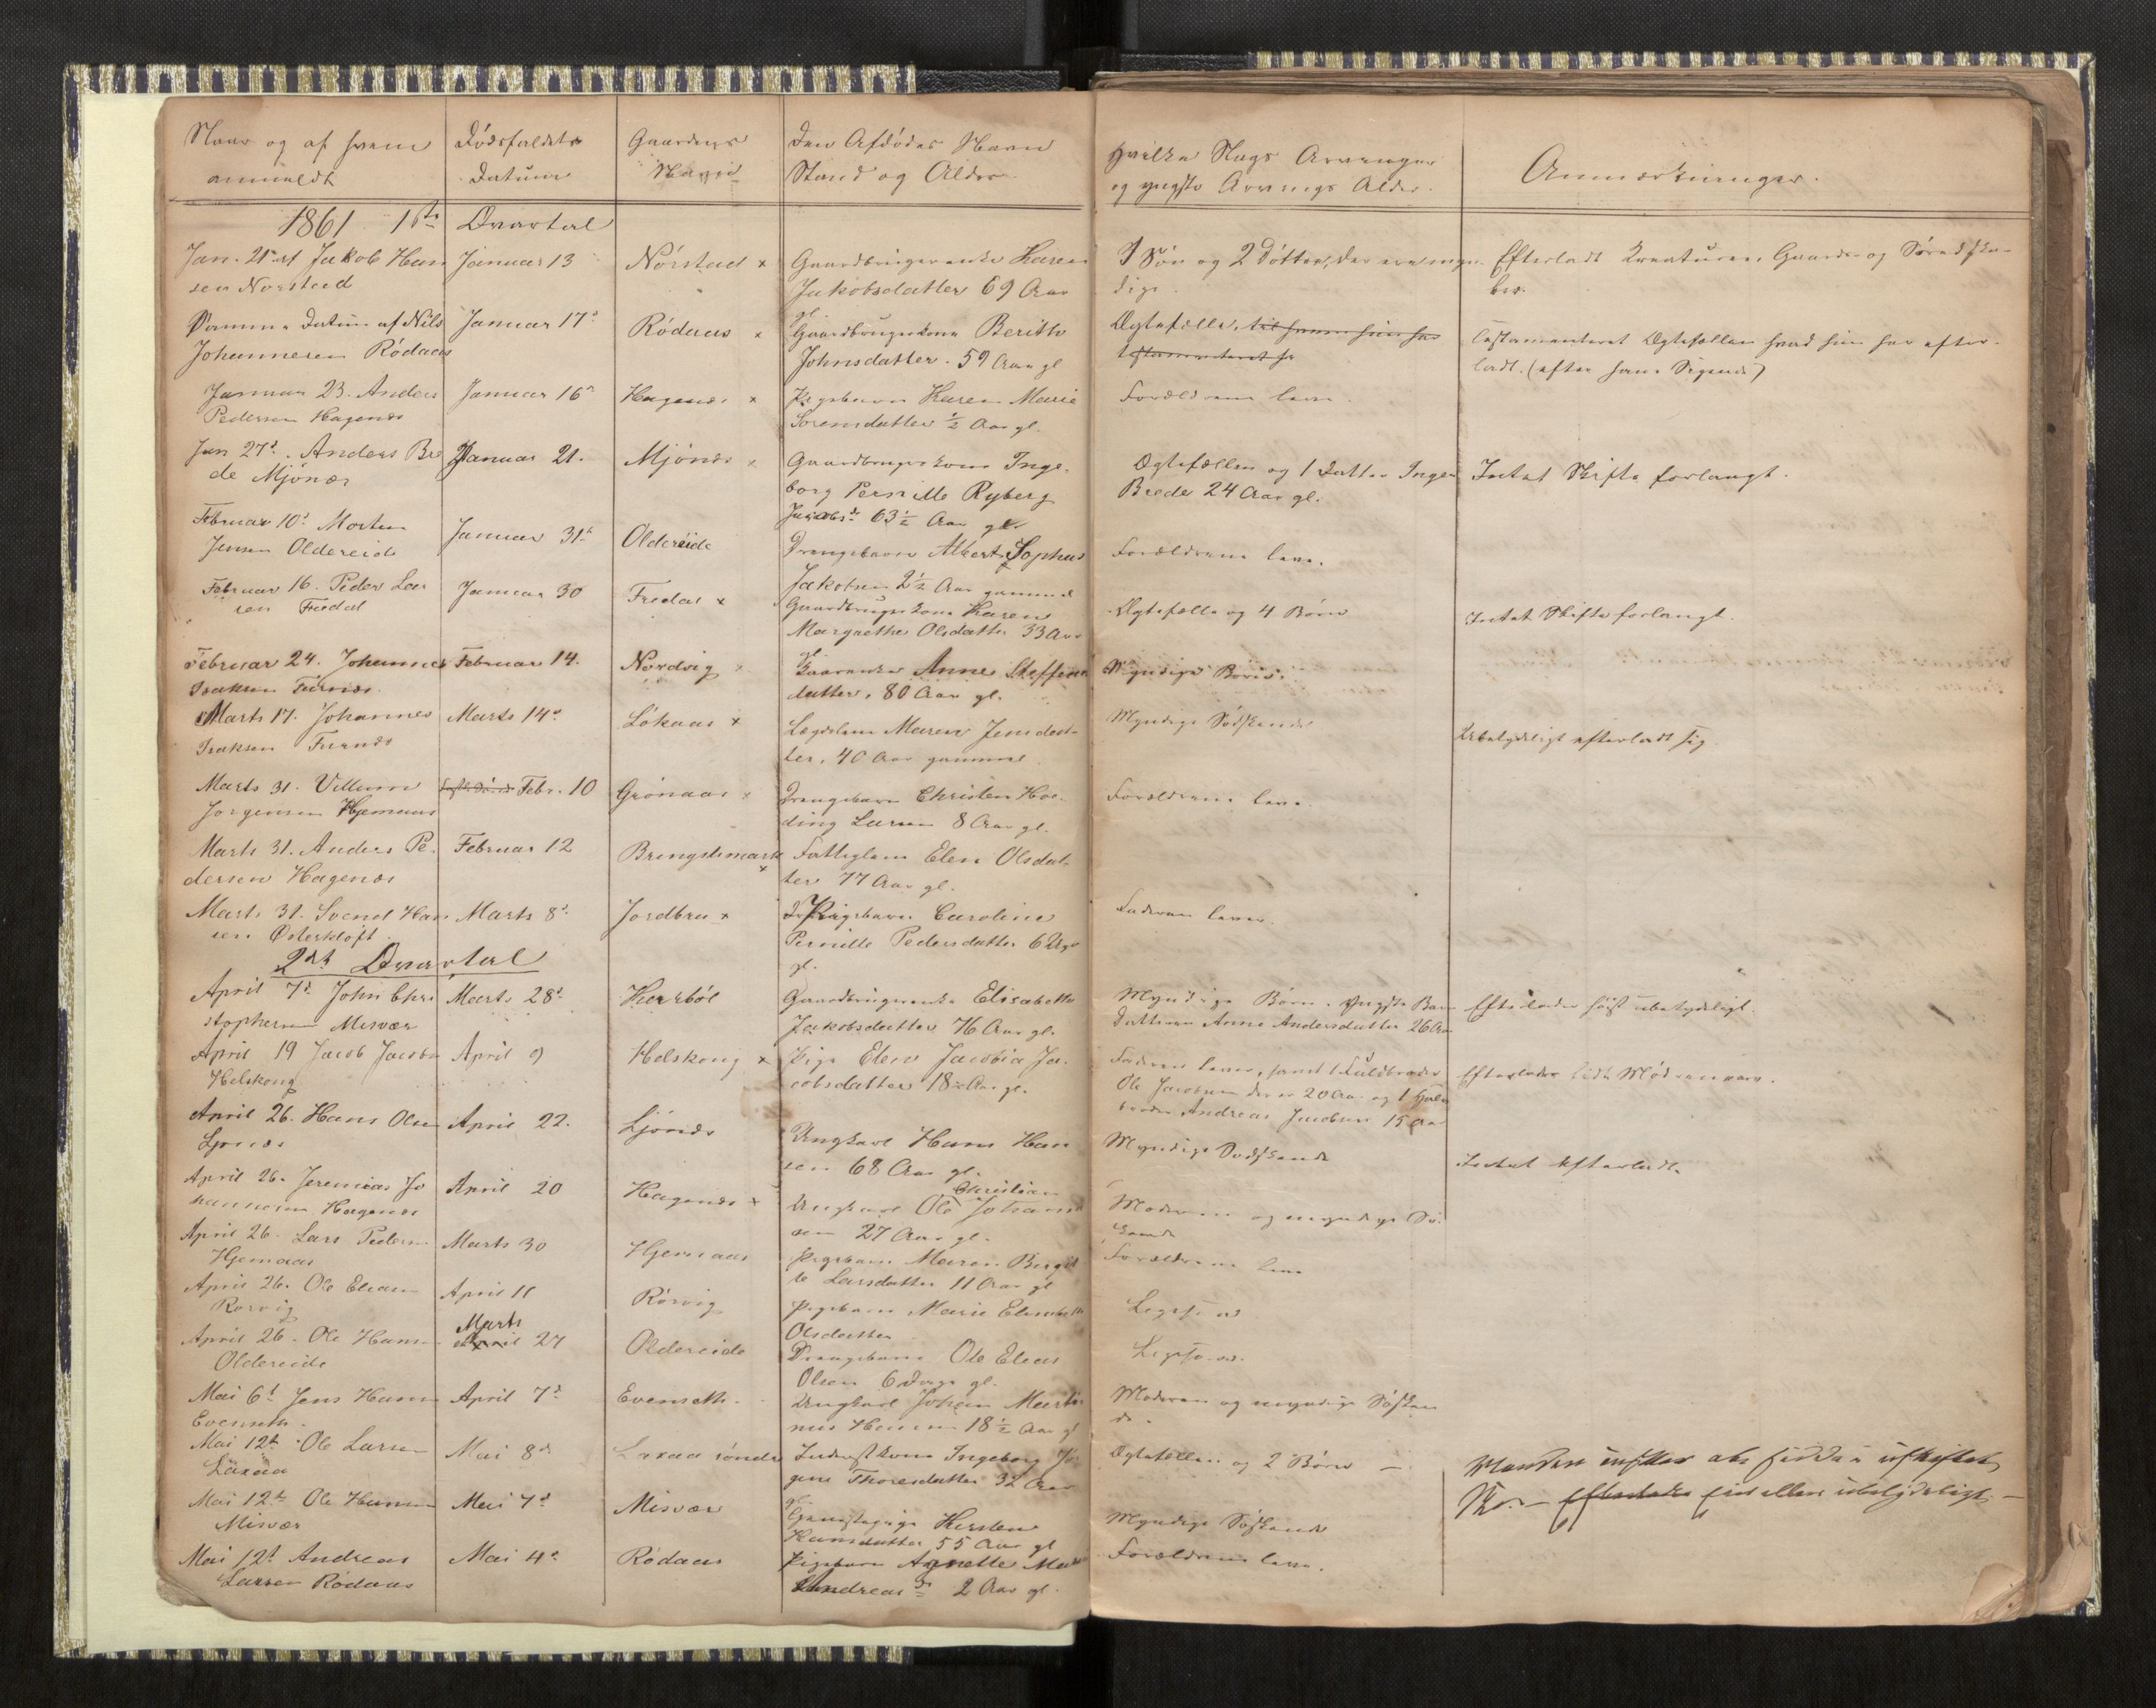 Naar og af hvem
anmeldt
Dödsfaldets
Datum
Gaardens
Navn
Den Afdödes Navn
Stand og Alder
Hvilke Slags Arvinger
og yngste Arvings Alder.
Anmærkninger.
1861 1ste Qvartal
Jan. 21 af Jakob Han
sen Norstad
Januar 13
Nörstad x
Gaardbrugerenke Karen
Jakobsdatter 69 Aar
gl.
1 Sön og 2 Döttre, der ere myn
dige.
Efterladt Kreaturer, Gaards og Söredska-
ber.
Samme Datum af Nils
Johannesen Rödaas
Januar 17d
Rödaas x
Gaardbrugerkone Berith
Johnsdatter. 59 Aar gl
Ægtefælle, til hvem hun har
testamenteret
Testamenteret Ægtefællen hvad hun har efter-
ladt. (efter hans Sigende)
Januar 23. Anders
Pedersen Hagenæs
Januar 16d
Hagenæs x
Pigebarn Karen Marie
Sorensdatter ½ Aar gl.
Forældrene leve.
Jan 27d. Anders Bre
de Mjönes
Januar 21.
Mjönes x
Gaardbrugerkone Inge-
borg Pernille Ryberg
Jakobsd 63½ Aar gl
Ægtefællen og 1 Datter Inger
Brede 24 Aar gl.
Intet Skifte forlangt.
Februar 10d Morten
Jensen Oldereide
Januar 31d
Oldereide
Drengebarn Albert Sophus
Jakobsen 2½ Aar gammel
Forældrene leve.
Februar 16. Peder Lar
sen Fredal
Januar 30
Fredal x
Gaardbrugerkone Karen
Margrethe Olsdatter 33 Aar
gl.
Ægtefælle og 4 Börn
Intet Skifte forlangt.
Februar 24. Johannes
Isaksen Furnes
Februar 14.
Nordvig x
Anne Steffens
datter, 80 Aar gl.
Myndige Börn.
Marts 17. Johannes
Isaksen Furnes
Marts 14d
Lökaas x
Lægdslem Maren Jensdat-
ter, 40 Aar gammel
Myndige Södskende
Ubetydeligt efterladt sig
Marts 31. Villum
Jorgensen Hjemaas
Febr. 10
Grönaas x
Drengebarn Christen Hve-
ding Larsen 8 Aar gl.
Forældrene leve.
Marts 31. Anders Pe-
dersen Hagenæs
Februar 12
Bringslimark
x
Fattiglem Elen Olsdat-
ter 77 Aar gl.
Marts 31. Svend Han
sen Østerkloft
Marts 8d
Jordbru x
Pigebarn Caroline
Pernille Pedersdatter 6 Uger
gl.
Faderen lever.
2det Qvartal
April 7d John Chri
stophersen Misvær
Marts 28d
Kurrböl
Gaardbrugerenke Elisabeth
Jakobsdatter 76 Aar gl.
Myndige Börn. Yngste Barn
Datteren Anne Andersdatter 26 Aar
Efterlader höist ubetydeligt.
April 19 Jacob Jacobs
Helskong
April 9
Helskong x
Pige Elen Jacobia Ja-
cobsdatter 18 Aar gl.
Faderen lever, samt 1 Fuldbroder
Ole Jacobsen der er 20 Aar og 1 Halv
broder Andreas Jacobsen 15 Aar
Efterlader lidt Mödrenearv.
April 26. Hans Olsen
Ljönæs
April 22.
Ljönæs
Ungkarl Hans Han
sen 68 Aar gl.
Myndige Södskende
Intet Efterladt.
April 26. Jeremias Jo
hannesen Hagenæs
April 20
Hagenæs x
Christian
Ungkarl Ole Johann
sen 27 Aar gl.
Moderen og myndige Sö-
skende
April 26. Lars Pedersen
Hjemaas
Marts 30
Hjemaas
Pigebarn Maren Bergit
te Larsdatter 11 Aar gl
Forældrene leve
April 26. Ole Eliasen
Rörvig
April 11
Rörvig
Pigebarn Marie Elisabeth
Olsdatter
Ligesaa
April 26. Ole Hansen
Oldereide
Marts
April 27
Oldereide
Drengebarn Ole Elias
Olsen 6 Dage gl.
Ligesaa.
Mai 6d Jens Hansen
Evenseth.
April 7d
Evenseth.
Ungkarl Johan Marti
nus Hansen 18½ Aar gl
Moderen og myndige Sösken
de.
Mai 12d Ole Larsen
Laxaa
Mai 8d
Laxaa söndre
Inderstkone Ingeborg Jör
gine Thoresdatter 32 Aar
gl.
Ægtefællen og 2 Börn —
Manden önsker at hidde i uskiftet
Bo. — Efterlader ubetydeligt —
Mai 12d Ole Hansen
Misvær
Mai 7d
Misvær
Kirsten
Hansdatter 55 Aar gl
Myndige Söskende
Mai 12d Andreas
Larsen Rödaas
Mai 4d
Rödaas
Pigebarn Agnette Ma
Andreasd 2 Aar gl.
Forældrene leve.